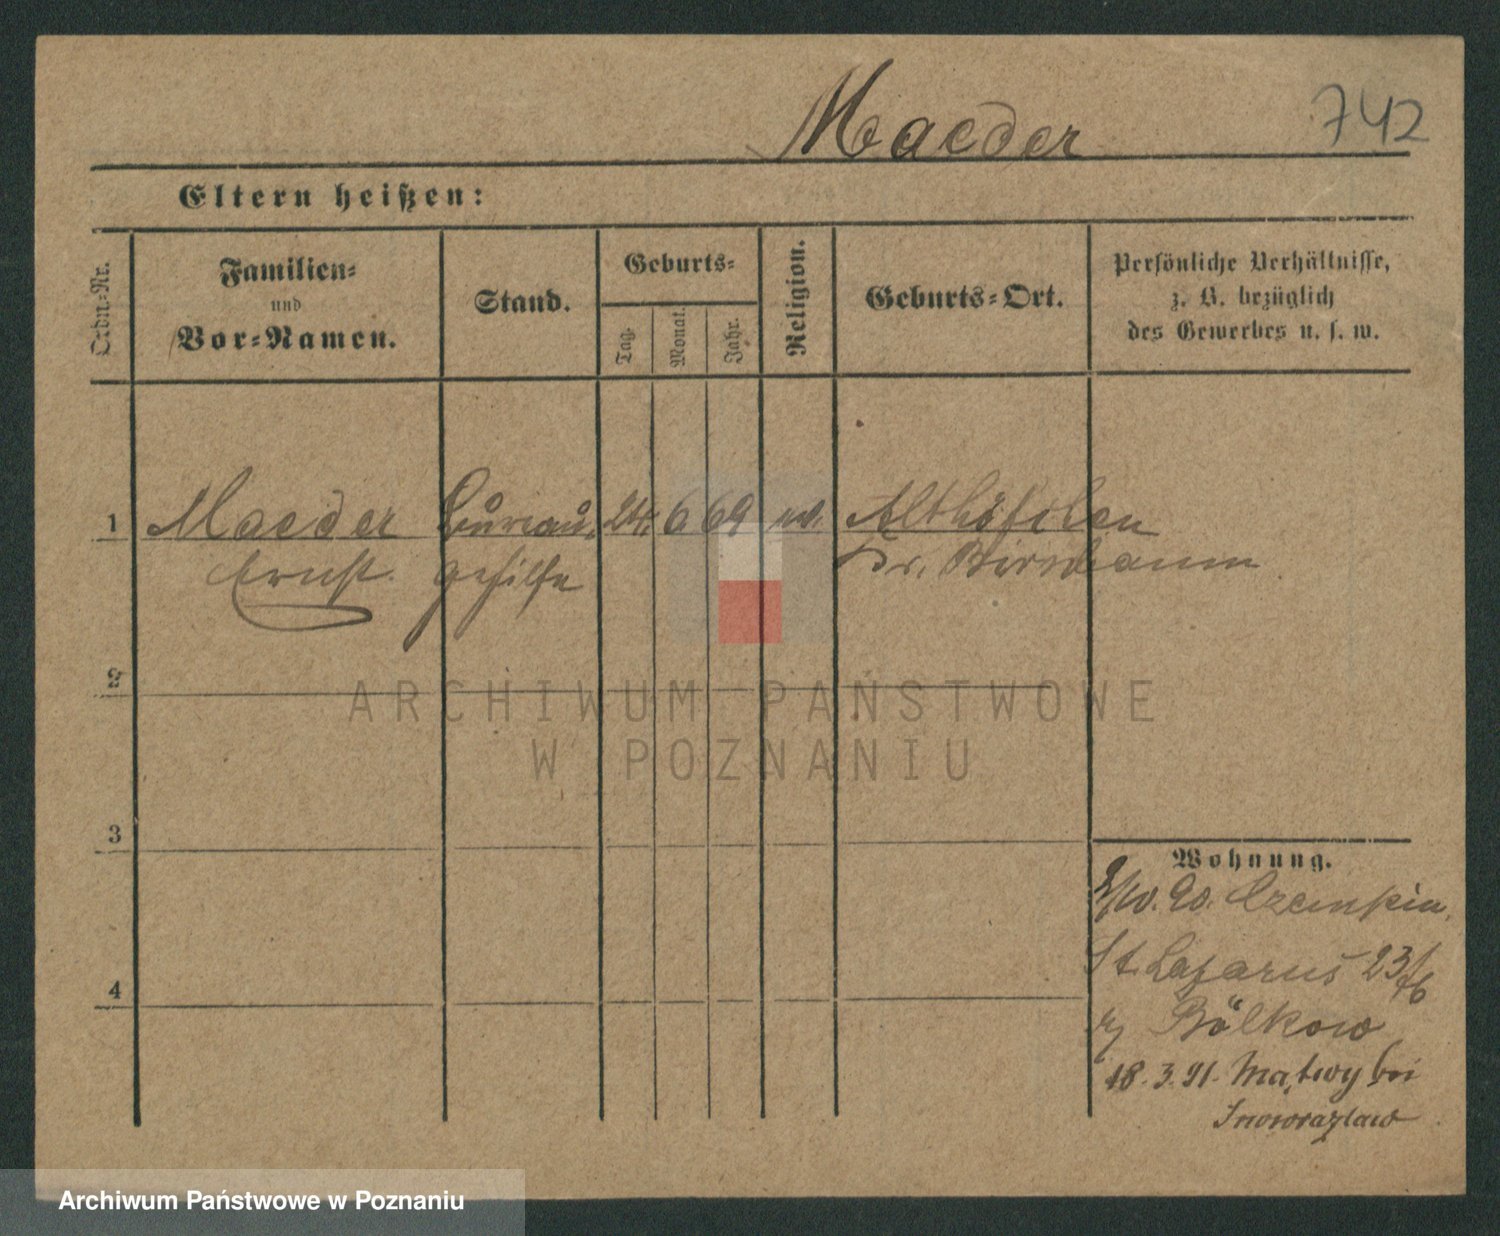 Maeder
742
Eltern heißen:
Ordn.-Nr.
Familien-
und
Vor-Namen.
Stand.
Geburts-
Tag.
Monat.
Jahr.
Religion.
Geburts-Ort.
Persönliche Verhältnisse,
z. B. bezüglich
des Gewerbes u. s. w.
1 Maeder Bureau 24. 6 69 ev. Althöfchen
Ernst. gehilfe Kr. Birnbaum
2
3
4
Wohnung.
90. Czempin.
St. Lazarus 23/
b/ Bölkow
18. 3. 91. Mątwy bei
Inowrazlaw
ARCHIWUM PAŃSTWOWE
W POZNANIU
Archiwum Państwowe w Poznaniu